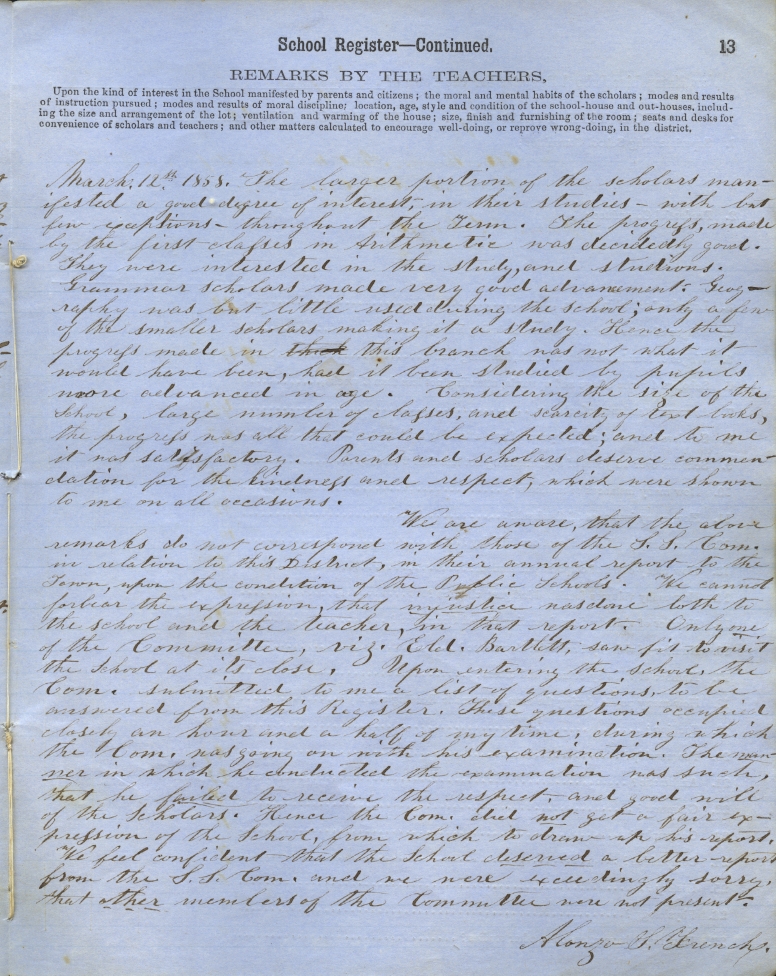 School Register—Continued. 13
REMARKS BY THE TEACHERS,
Upon the kind of interest in the School manifested by parents and citizens; the moral and mental habits of the scholars; modes and results
of instruction pursued; modes and results of moral discipline; location, age, style and condition of the school-house and out-houses, includ-
ing the size and arrangement of the lot; ventilation and warming of the house; size, finish and furnishing of the room; seats and desks for
convenience of scholars and teachers; and other matters calculated to encourage well-doing, or reprove wrong-doing, in the district.
March, 12th 1858. The larger portion of the scholars man-
ifested a good degree of interest, in their studies - with but
few exceptions - throughout the Term. The progress, made
by the first classes in Arithmetic was decidedly good.
They were interested in the study, and studious.
Grammar scholars made very good advancement. Geog-
raphy was but little used during the school; only a few
of the smaller scholars making it a study. Hence the
progress made in this branch was not what it
would have been, had it been studied by pupils
more advanced in age. Considering the size of the
School, large number of classes, and scarcity of text books,
the progress was all that could be expected; and to me
it was satisfactory. Parents and scholars deserve commen-
dation for the kindness and respect, which were shown
to me on all occasions.
We are aware, that the above
remarks do not correspond with those of the S. S. Com.
in relation to this District, in their annual report to the
Town, upon the condition of the Public Schools. We cannot
forbear the expression, that injustice was done both to
the school and the teacher, in that report. Only one
of the Committee, viz. Eld. Bartlett, saw fit to visit
the School at its close. Upon entering the school, the
Com. submitted to me a list of questions, to be
answered from this Register. These questions occupied
closely an hour and a half of my time, during which
the Com. was going on with his examination. The man-
ner in which he conducted the examination was such,
that he failed to receive the respect, and good will
of the Scholars. Hence the Com. did not get a fair ex-
pression of the School, from which to draw up his report.
We feel confident that the School deserved a better report
from the S. S. Com. and we were exceedingly sorry,
that other members of the Committee were not present.
Alonzo S. French.